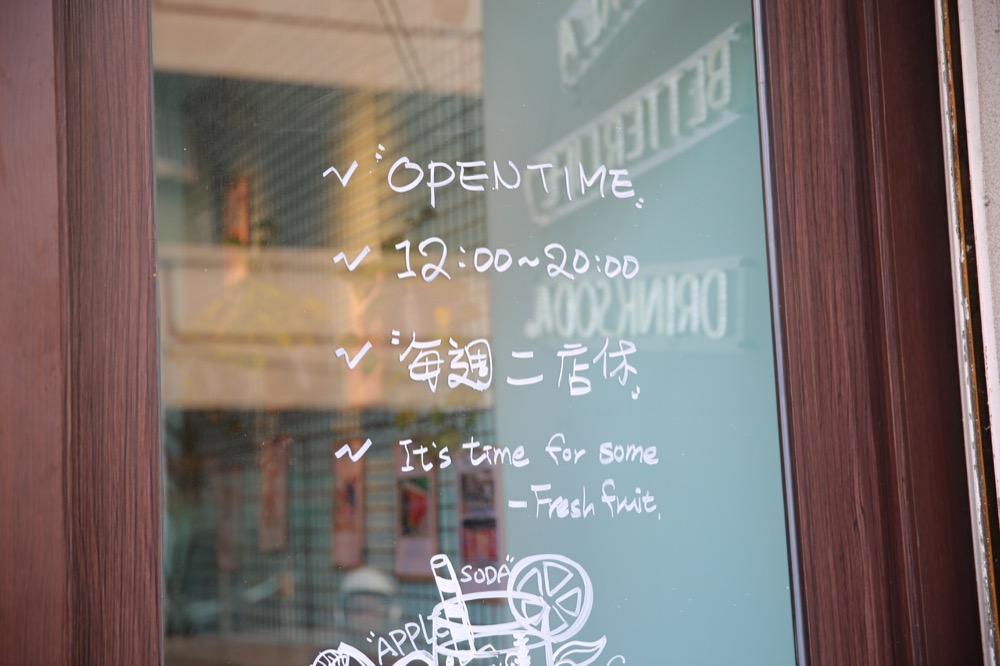 "OPEN TIME"
12:00~20:00
"每週二店休"
It's time for some
-Fresh fruit.
"SODA"
"APPLE
BETTER
DRINK SODA.